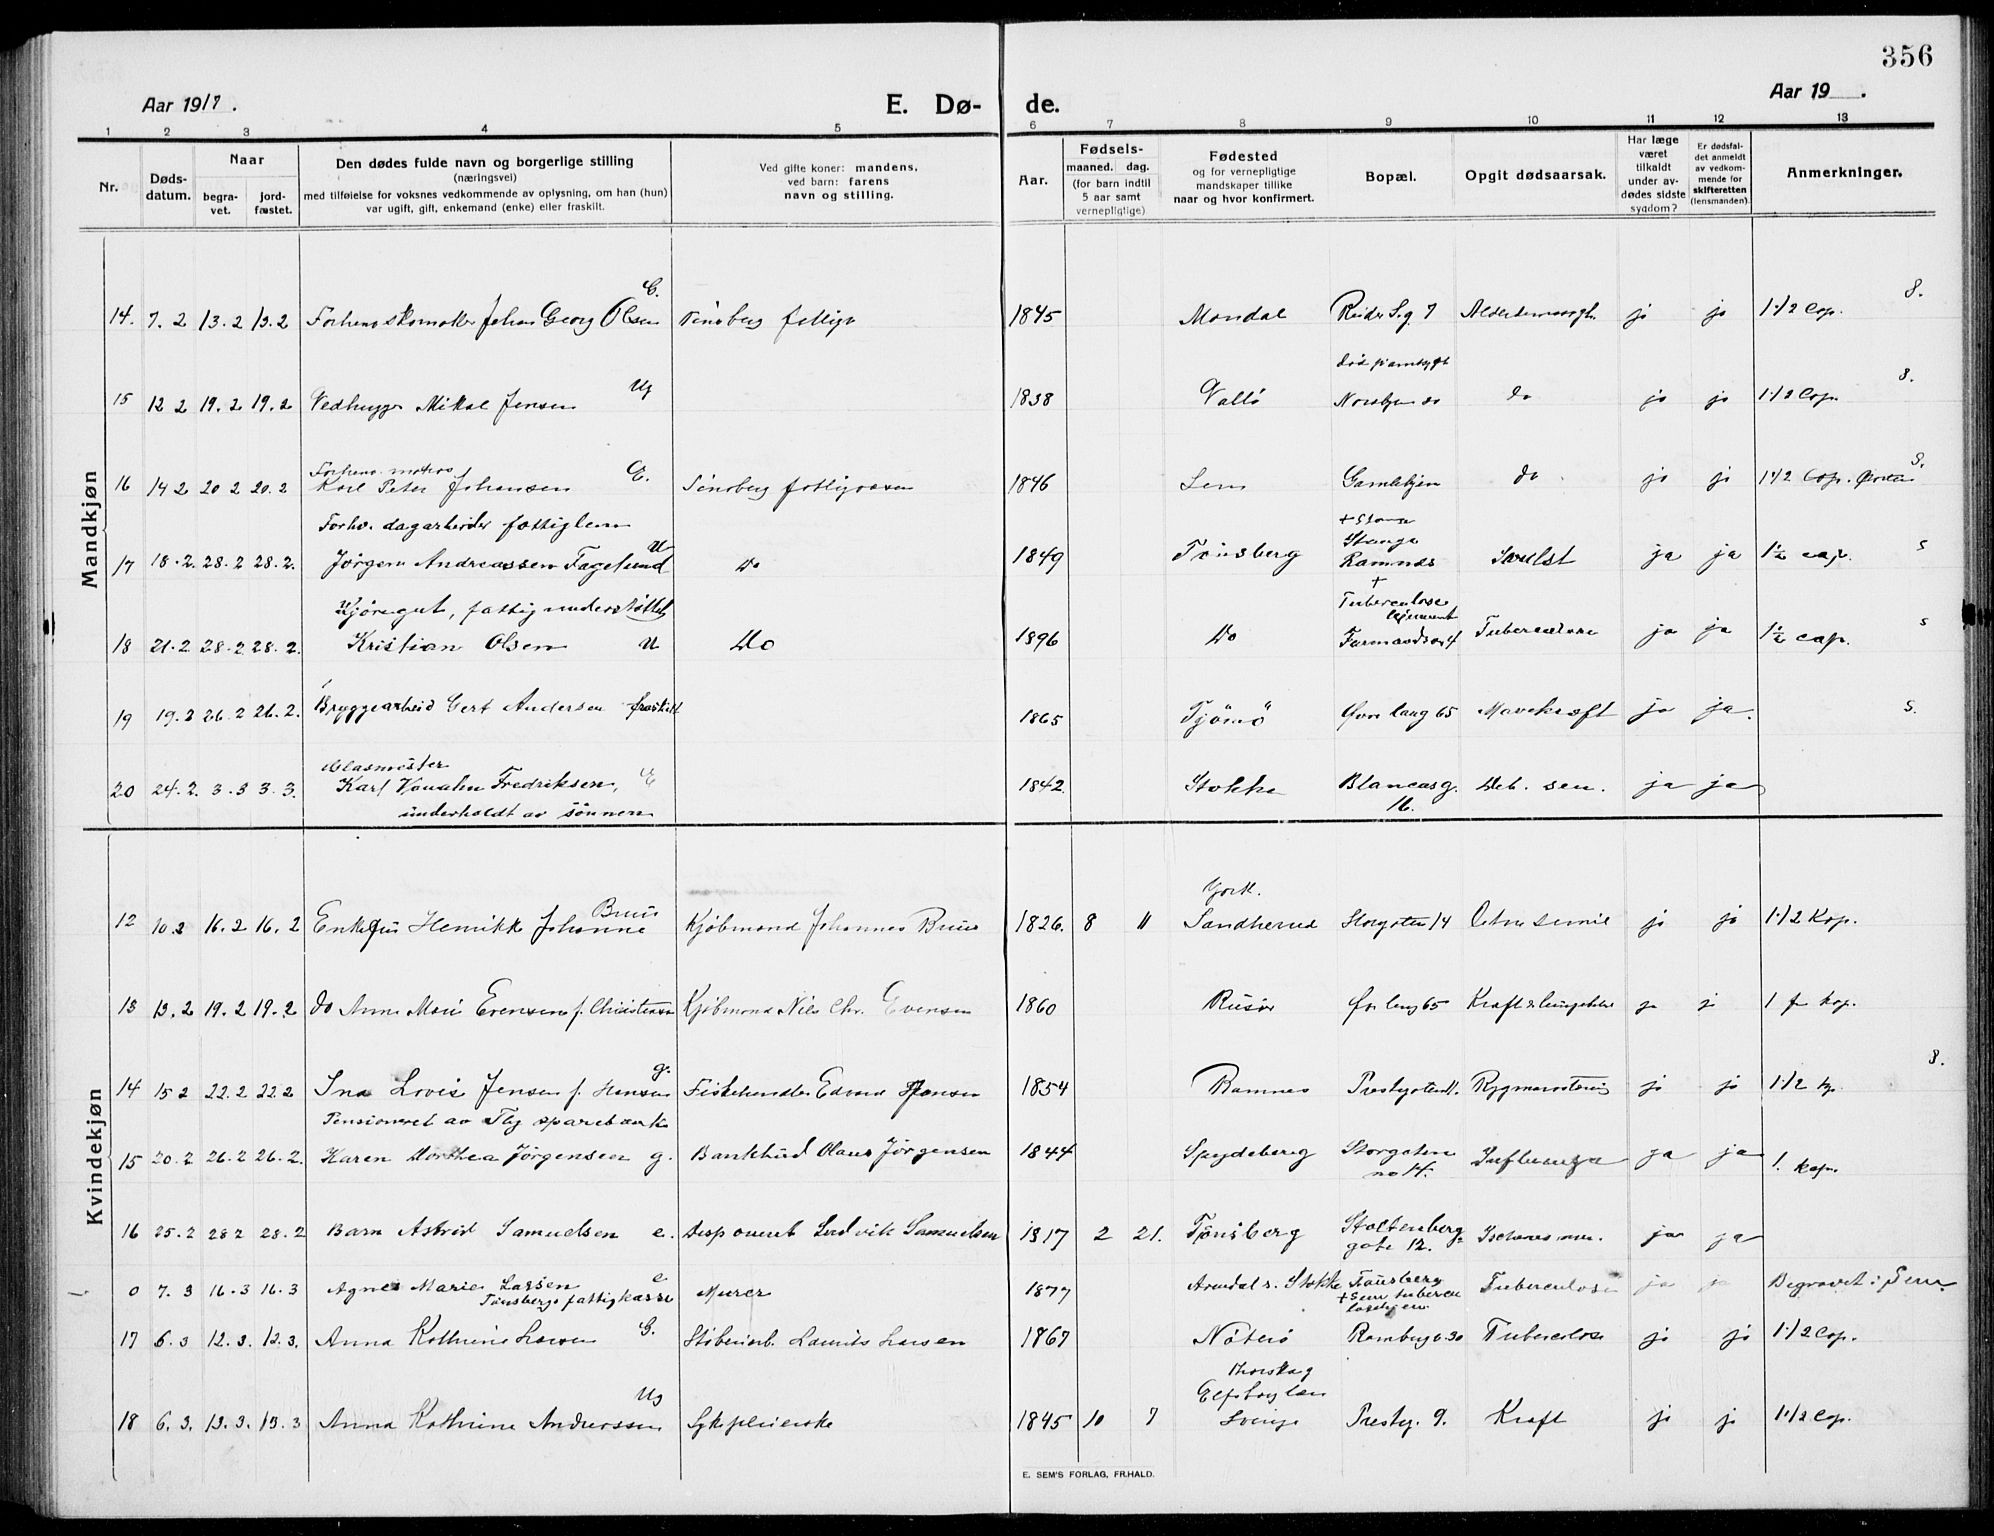 356
Aar 1917.
E. Dø-
de.
Aar 19 .
1 2 3 4 5 6 7 8 9 10 11 12 13
Nr.
Døds-
datum.
Naar
begra-
vet.
jord-
fæstet.
Den dødes fulde navn og borgerlige stilling
(næringsvei)
med tilføielse for voksnes vedkommende av oplysning, om han (hun)
var ugift, gift, enkemand (enke) eller fraskilt.
Ved gifte koner: mandens,
ved barn: farens
navn og stilling.
Aar.
Fødsels-
maaned. dag.
(for barn indtil
5 aar samt
vernepligtige)
Fødested
og for vernepligtige
mandskaper tillike
naar og hvor konfirmert.
Bopæl.
Opgit dødsaarsak.
Har læge
været
tilkaldt
under av-
dødes sidste
sygdom?
Er dødsfal-
det anmeldt
av vedkom-
mende for
skifteretten
(lensmanden).
Anmerkninger.
Mandkjøn
E. 8.
14. 7. 2 13. 2 13. 2 Johan Georg Olsen 1845 Mandal ja ja 1 1/2 Cop.
Ug 8.
15 12 2 19. 2 19. 2 Vedhugger Mikal Jensen 1838 Vallö do ja ja 1 1/2 Cop.
E. 8.
16 14 2 20 2 20. 2 Karl Peter Johansen 1846 Sem Gamlehjem do ja ja 1 1/2 Cop.
Forhv. dagarbeider fattiglem
17 18. 2. 28. 2 28. 2. Jørgen Andreassen Fagelund U Do 1849 Tønsberg Ramnes ja ja 1 1/2 cap. S
Kjøregut, fattig understøttet
Tuberculose
18 21. 2 28. 2 28. 2. Kristian Olsen U Do 1896 Do Tuberculose ja ja 1 1/2 cap. S
19 19. 2 26. 2 26. 2. Bryggearbeid Gert Andersen fraskilt 1865 Tjömö Øvre lang 65 Mavekræft ja ja. S.
Glasmester
20 24. 2. 3. 3 3. 3. Karl Fredriksen, E 1842. Stokke Blancasg. 16. Deb. sen. ja ja
underholdt av sönnen
Kvindekjøn
12 10. 2 16. 2 16. 2 Henrikke Johanne Bruu Kjøbmand Johannes Bruu 1826. 8 11 Sandherred Storgaten 14 ja ja 1 1/2 Kop.
13 13. 2 19. 2 19. 2 do Anne Marie Evensen f. Christensen Kjøbmand Niels Chr. Evensen 1860 Risør Øvr lang 65 ja j 1 f kop.
g. 8.
14 15 2 22. 2 22 2 Ina Lovis Jensen f. Hansen Fiskehandler Edvard Jensen 1854 Ramnes ja ja 1 1/2 kp
Pensioneret av Tbg sparebank
15 20. 2 26. 2 26. 2. Karen Dorthea Jørgensen g. Bankbud Olaus Jørgensen 1844 Spydeberg Storgaten no 14. Influenza ja ja 1. kop.
16 25. 2 28 2 28. 2 Barn Astrid Samuelsen e. Disponent Ludvik Samuelsen 1917 2 21. Tønsberg Stoltenberg gate 12. ja ja
0 7. 3 16. 3 16. 3 Agnes Marie Larsen e Murer 1877 Arendal s. Stokke Tønsberg Tuberculose ja ja Begravet i Sem.
Tønsbergs fattigkasse
17 6. 3 12. 3. 12. 3. Anna Kathrine Larsen G. Støberiarb. Laurits Larsen 1867 Nöterö Rambergv. 30 Tuberculose ja ja 1 1/2 Cop.
Ug
18 6. 3. 13. 3. 13. 3 Anna Kathrine Anderssen Sykepleierske 1845 10 7 Elfsborg län Sverige Prestg. 9. Kræft ja ja 1 1/2 Cop.
E. SEM'S FORLAG, FR.HALD.